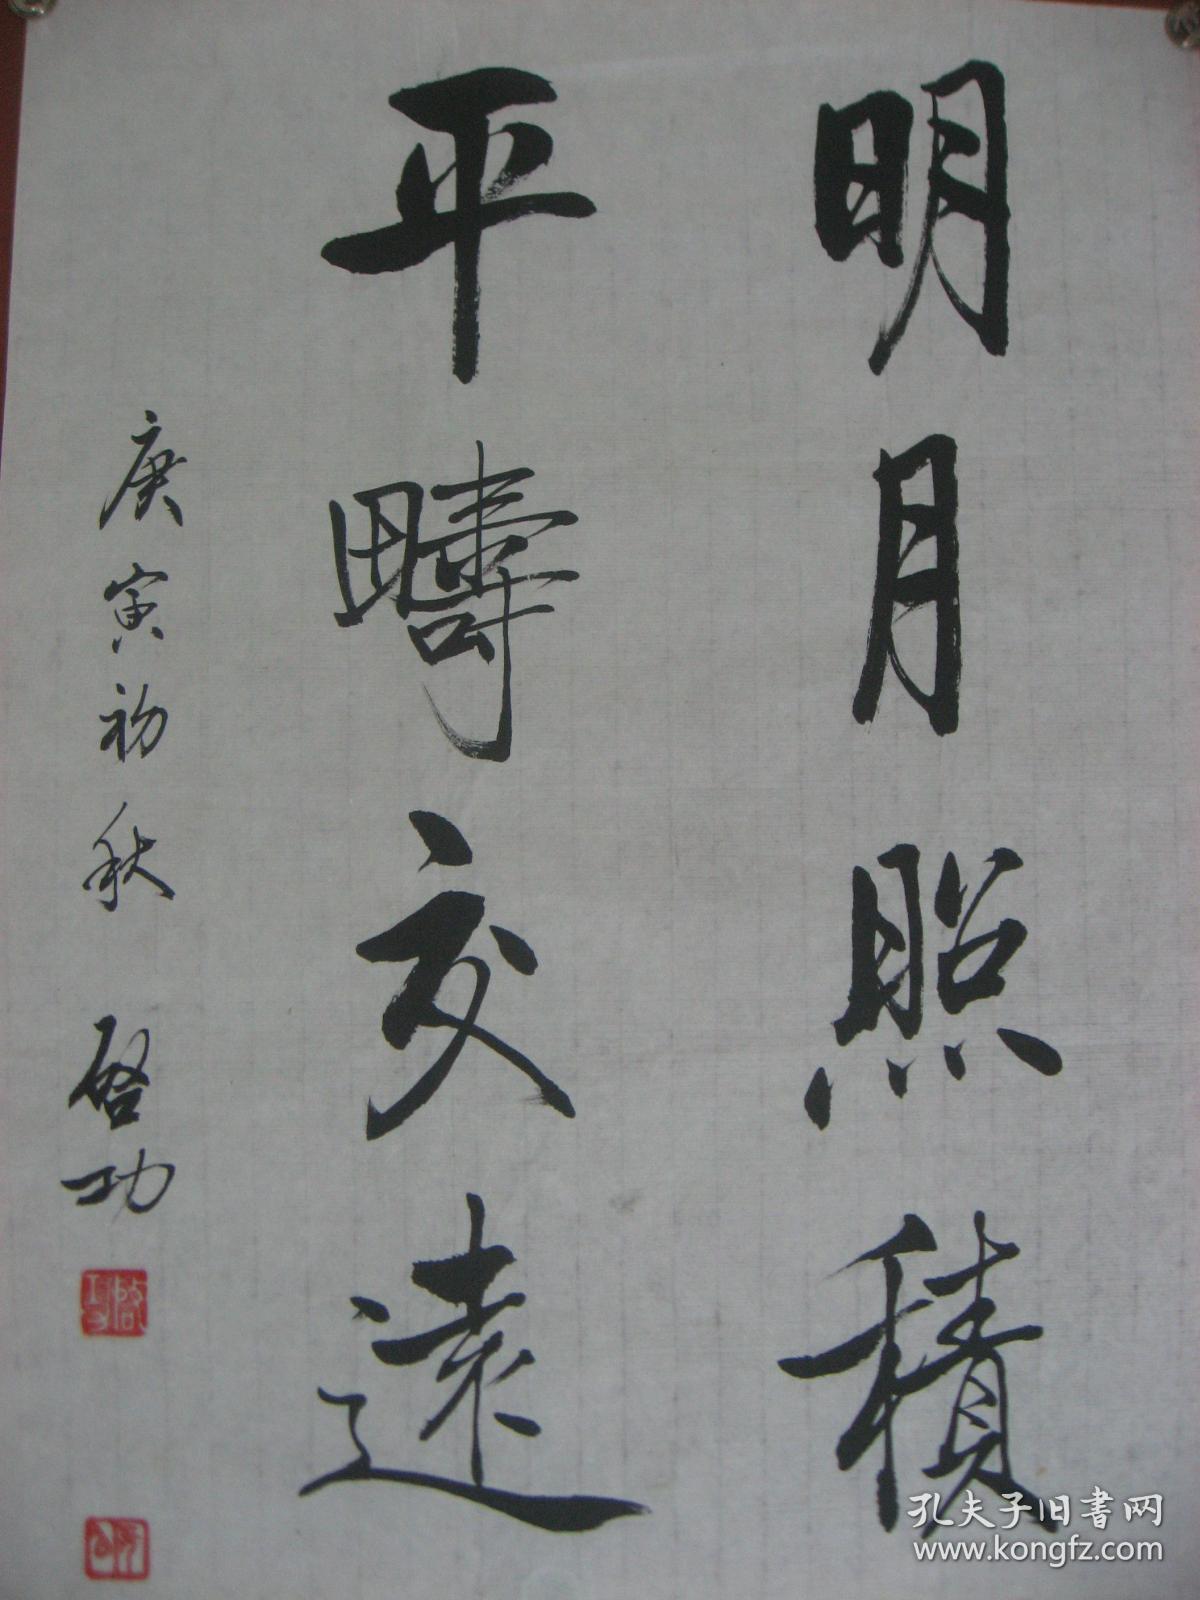 明月照積
平疇交遠
庚寅初秋 啓功
啓功
孔夫子旧书网
www.kongfz.com